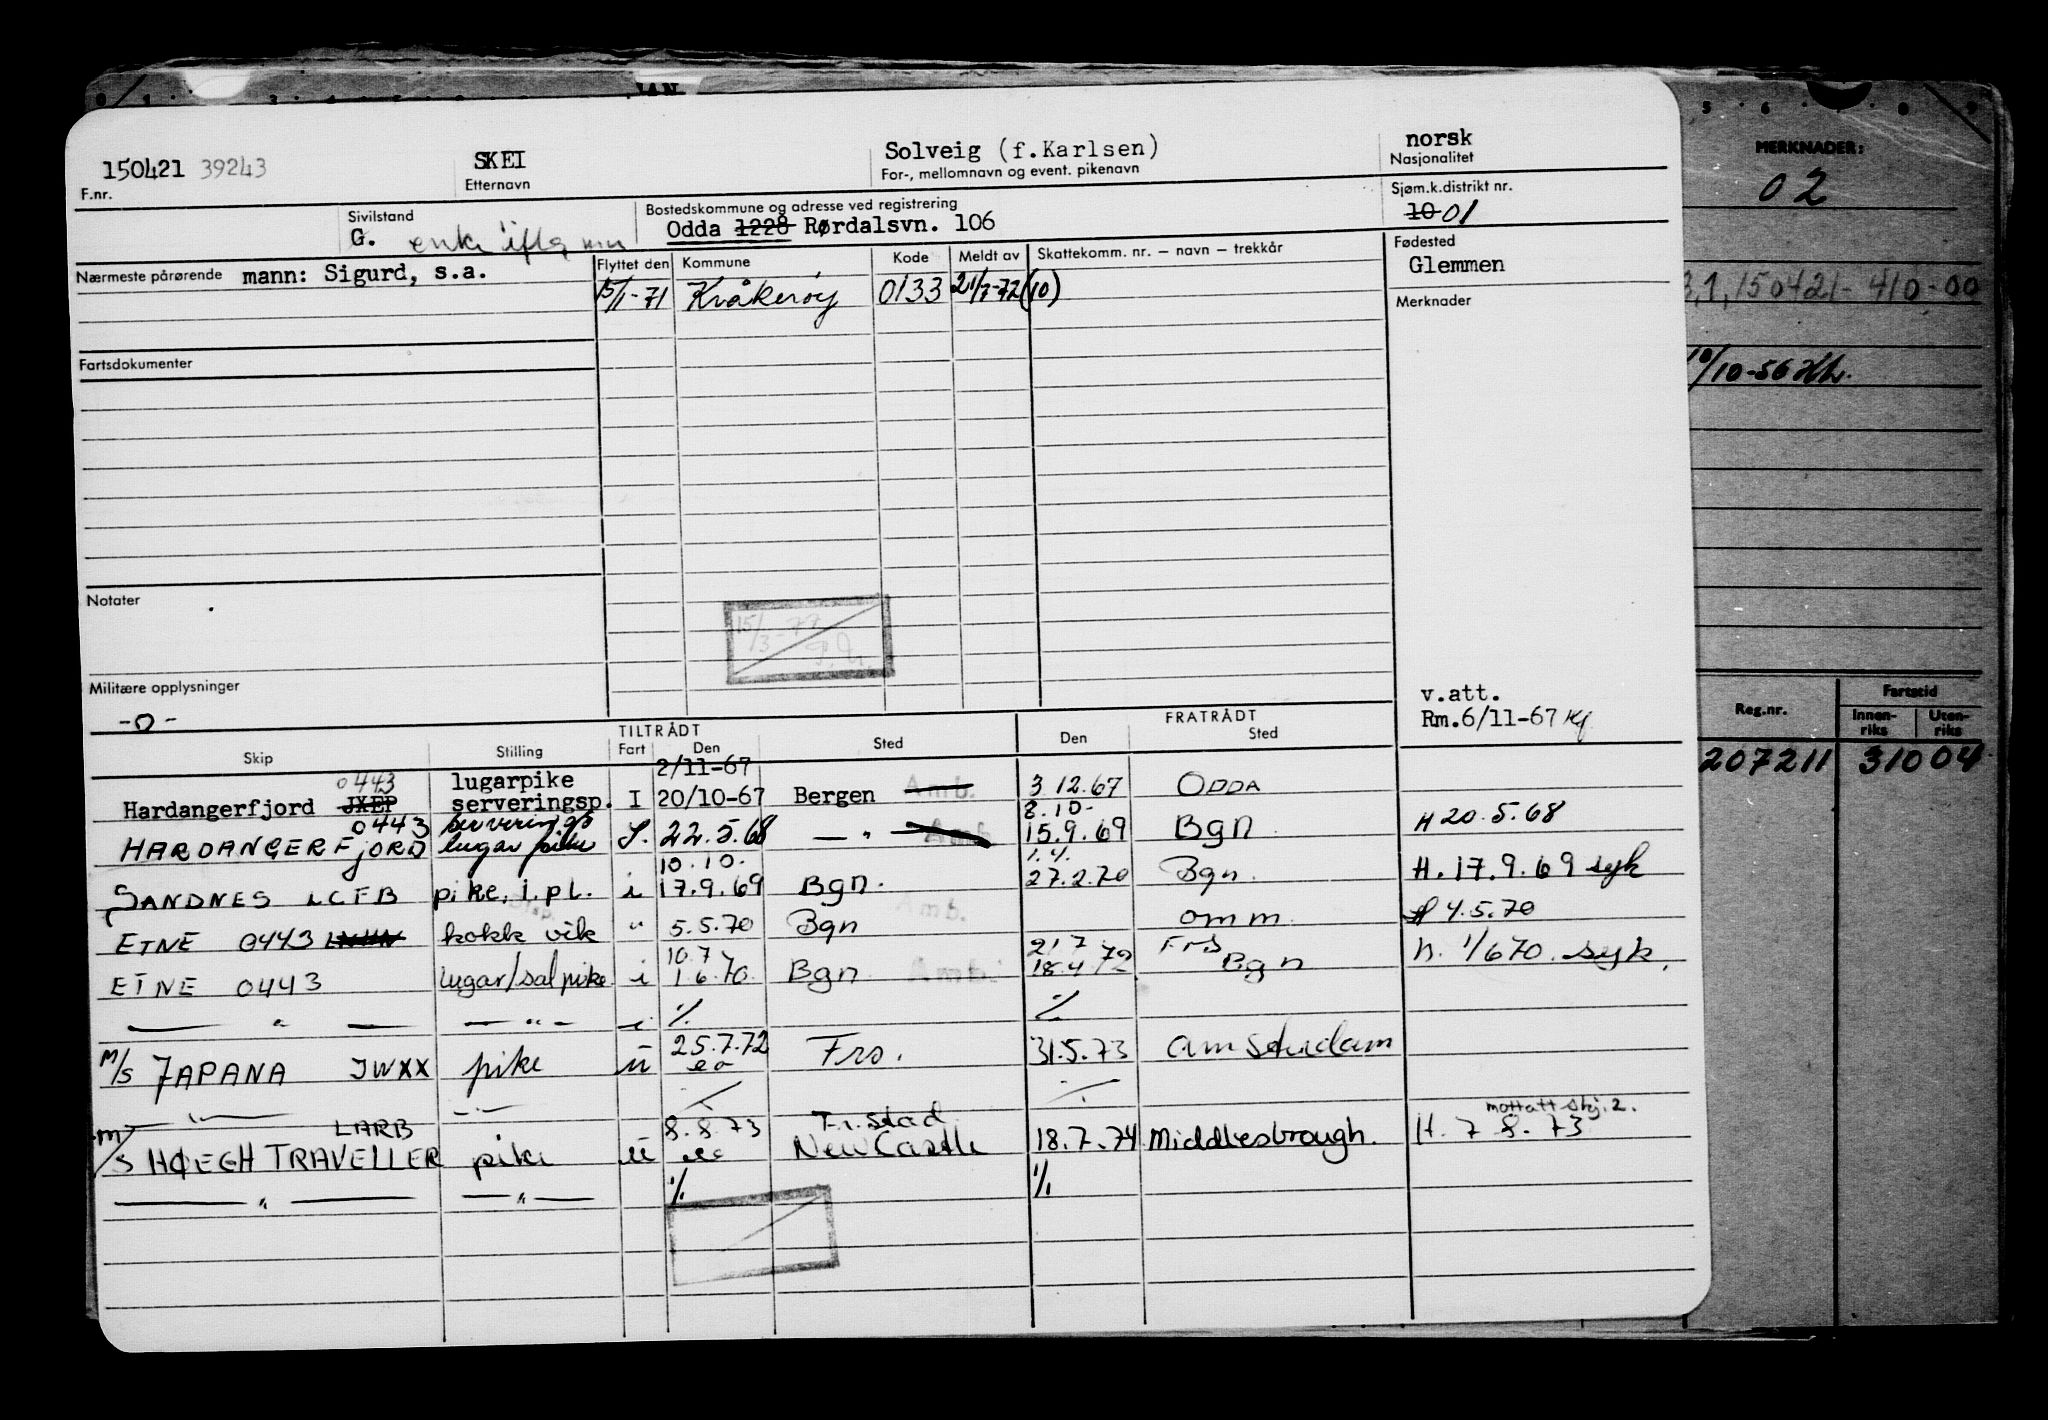 JAN
150421 39243
SKEI
Solveig (f.Karlsen)
norsk
F.nr.
Etternavn
For-, mellomnavn og event. pikenavn
Nasjonalitet
Sivilstand
Bostedskommune og adresse ved registrering
Sjøm.k.distrikt nr.
G. enke
Odda 1228 Rørdalsvn. 106
10 01
Nærmeste pårørende mann: Sigurd, s.a.
Flyttet den Kommune Kode Meldt av Skattekomm. nr. — navn — trekkår
Fødested
Glemmen
15/1-71 Kråkerøy 0133 21/7-72 (10)
Merknader
Fartsdokumenter
Notater
15/3-77
Militære opplysninger
-0-
v.att.
Rm.6/11-67
TILTRÅDT FRATRÅDT
Skip Stilling Fart Den Sted Den Sted
0443 lugarpike 2/11-67
Hardangerfjord JXEP serveringsp. I 20/10-67 Bergen Amb. 3 12.67 ODDA
0443 serverings 8.10-
HARDANGERFJORD lugar pike S. 22.5.68 — " — Amb 15.9.69 Bgn H 20.5.68
10.10. 1.4.
SANDNES LCFB pike, i.pl. i 17.9.69 Bgn. 27.2.70 Bgn. H. 17.9.69 syk
Amb.
ETNE 0443 kokk vik " 5.5.70 Bgn omm. H 4.5.70
10.7 21 7 72 Frs
ETNE 0443 lugar/sal pike i 1 6 70 Bgn Amb. 18.4 72 Bgn h. 1/6 70. syk.
— " — — " — i % %
25.7.72
M/S JAPANA JWXX pike ü Frs. 31.5.73 Amsterdam
LARB 8.8.73 Fr.stad mottatt skj. 2.
M/S HØEGH TRAVELLER pike ü New Castle 18.7.74 Middlesbrough. H. 7 8.73
— " — — " — % %
5 6 8 9
MERKNADER:
02
3,1,150421-410-00
10/10-56
Reg.nr. Fartstid
Innen-riks Uten-riks
207211 310 04